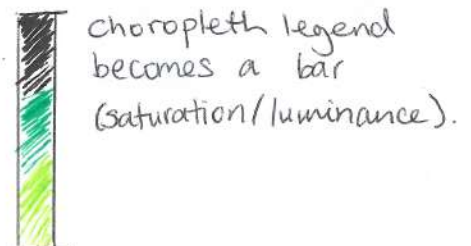 choropleth legend
becomes a bar
(saturation/luminance).